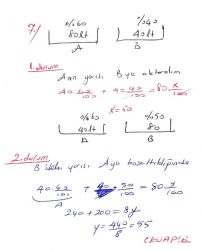 7/
%60 %40
80lt 40lt
A B
1. durum
A'nın yarısı B'ye aktaralım
40 60/100 + 40 40/100 = 80 x/100
x=50
%60 %50
40lt 80
A B
2. durum
B'deki yarısı A'ya boşaltıldığında
40. 60/100 + 40. 50/100 = 80 y/100
A
240 + 200 = 8y
y = 440/8 = 55
CEVAP:E